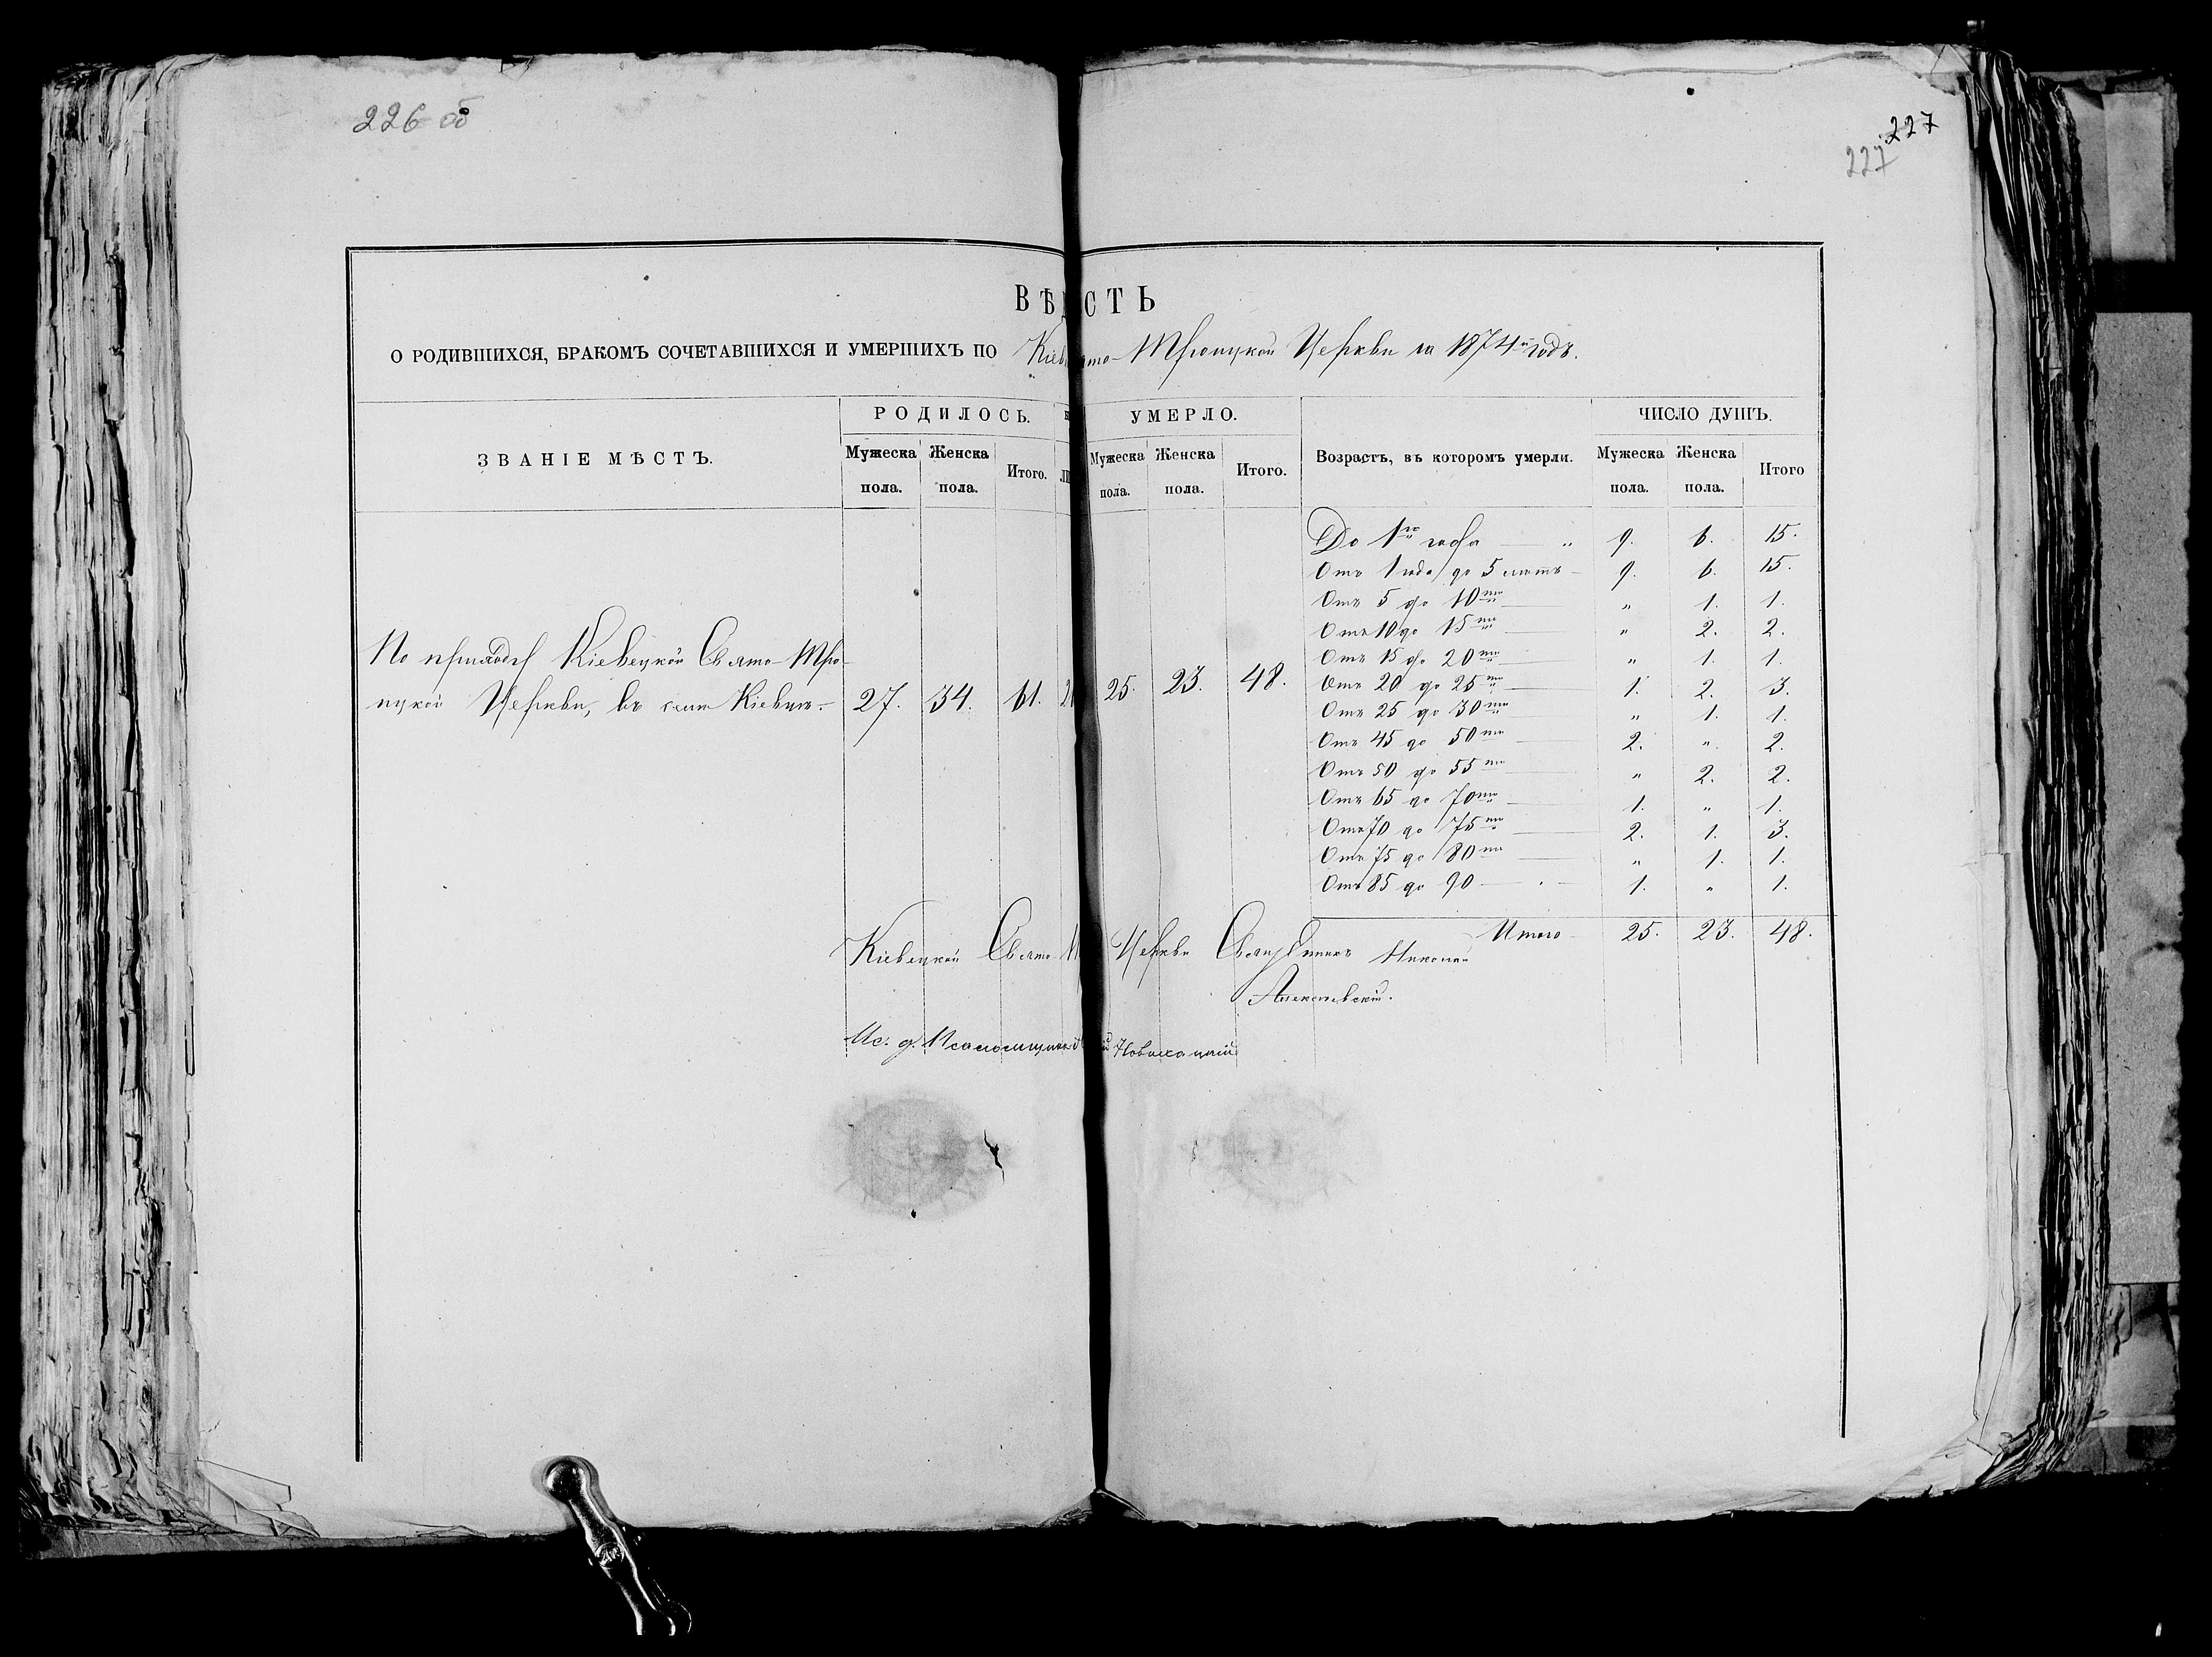 226 об
227
227
ВѢ СТЬ
О РОДИВШИХСЯ, БРАКОМЪ СОЧЕТАВШИХСЯ И УМЕРШИХЪ ПО Троицкой Церкви за 1874й годъ.
ЗВАНІЕ МѢСТЪ.
РОДИЛОСЬ.
УМЕРЛО.
Возрастъ, въ которомъ умерли.
ЧИСЛО ДУШЪ.
Мужеска пола.
Женска пола.
Итого.
Мужеска пола.
Женска пола.
Итого.
Мужеска пола.
Женска пола.
Итого
До 1го года — „ 9. 6. 15.
Отъ 1 года до 5 лѣтъ — 9. 6. 15.
Отъ 5 до 10ти — „ 1. 1.
Отъ 10 до 15ти — „ 2. 2.
Отъ 15 до 20ти — „ 1. 1.
Отъ 20 до 25ти — 1. 2. 3.
Отъ 25 до 30ти — „ 1. 1.
Отъ 45 до 50ти — 2. „ 2.
Отъ 50 до 55ти — „ 2. 2.
Отъ 65 до 70ти — 1. „ 1.
Отъ 70 до 75ти — 2. 1. 3.
Отъ 75 до 80ти — „ 1. 1.
Отъ 85 до 90 — 1. „ 1.
Итого 25. 23. 48.
По приходу Кіевецкой Свято-Тро-
ицкой Церкви, въ селѣ Кіевцѣ. 27. 34. 61. 25. 23. 48.
Кіевецкой Свято Церкви Священникъ Николай
Ис. д. Псаломщика